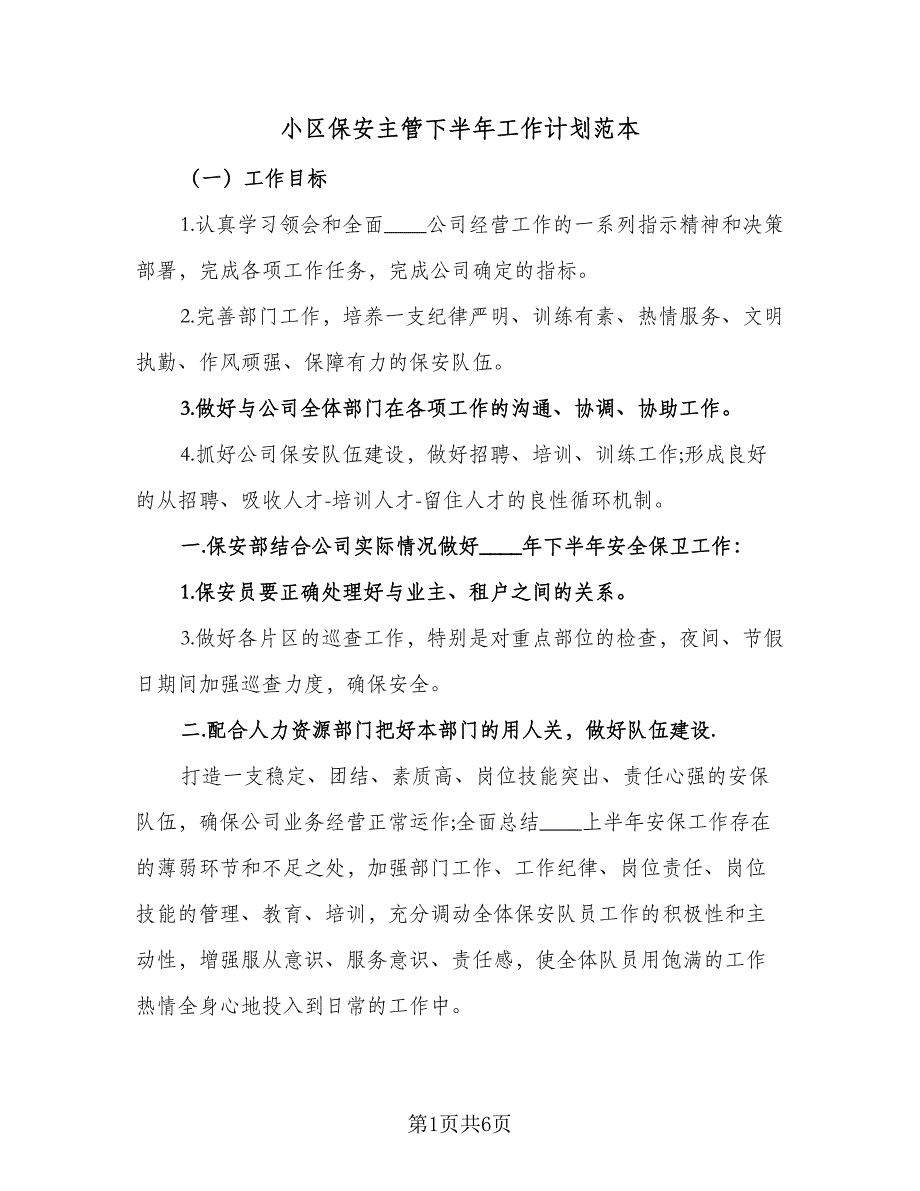 小区保安主管下半年工作计划范本
（一）工作目标
1.认真学习领会和全面____公司经营工作的一系列指示精神和决策
部署，完成各项工作任务，完成公司确定的指标。
2.完善部门工作，培养一支纪律严明、训练有素、热情服务、文明
执勤、作风顽强、保障有力的保安队伍。
3.做好与公司全体部门在各项工作的沟通、协调、协助工作。
4.抓好公司保安队伍建设，做好招聘、培训、训练工作;形成良好
的从招聘、吸收人才-培训人才-留住人才的良性循环机制。
一.保安部结合公司实际情况做好____年下半年安全保卫工作：
1.保安员要正确处理好与业主、租户之间的关系。
3.做好各片区的巡查工作，特别是对重点部位的检查，夜间、节假
日期间加强巡查力度，确保安全。
二.配合人力资源部门把好本部门的用人关，做好队伍建设.
打造一支稳定、团结、素质高、岗位技能突出、责任心强的安保
队伍，确保公司业务经营正常运作;全面总结____上半年安保工作存在
的薄弱环节和不足之处，加强部门工作、工作纪律、岗位责任、岗位
技能的管理、教育、培训，充分调动全体保安队员工作的积极性和主
动性，增强服从意识、服务意识、责任感，使全体队员用饱满的工作
热情全身心地投入到日常的工作中。
第1页共6页